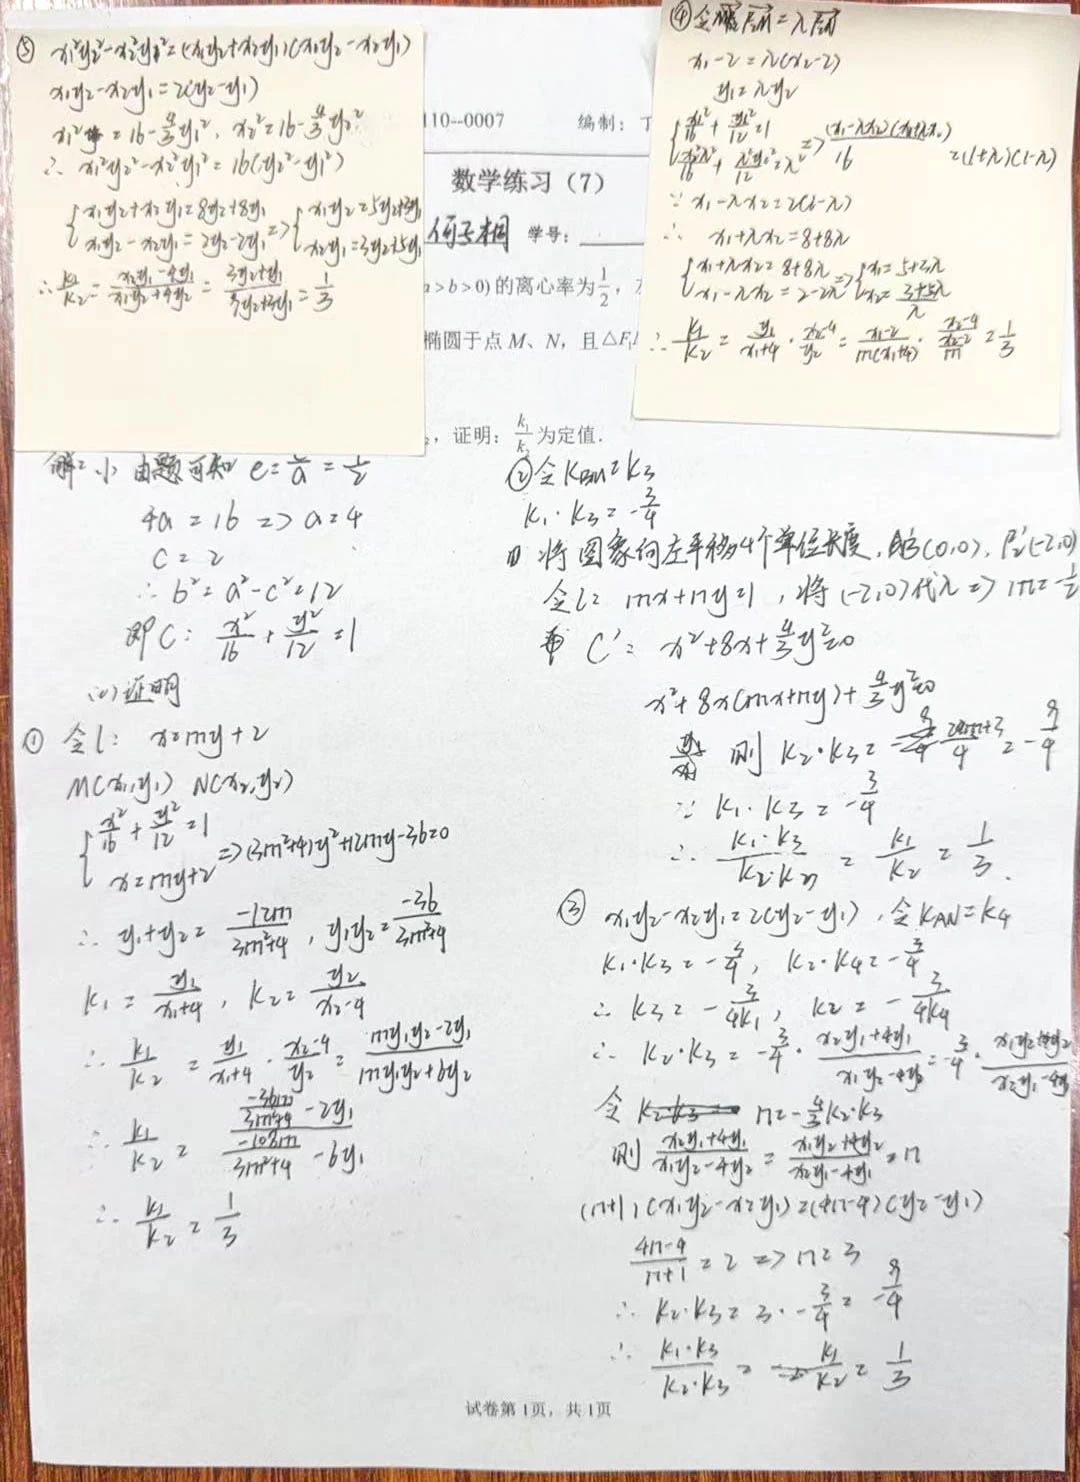 ⑤ x₁²y₂²-x₂²y₁²=(x₁y₂+x₂y₁)(x₁y₂-x₂y₁)
x₁y₂-x₂y₁=2(y₂-y₁)
x₁²=16-4/3y₁², x₂²=16-4/3y₂²
∴ x₁²y₂²-x₂²y₁²=16(y₂²-y₁²)
{x₁y₂+x₂y₁=8y₂+8y₁
x₁y₂-x₂y₁=2y₂-2y₁ => {x₁y₂=5y₂+3y₁
x₂y₁=3y₂+5y₁
∴ k₁/k₂=(x₂y₁-4y₁)/(x₁y₂+4y₂)=(3y₂+y₁)/(9y₂+3y₁)=1/3
④ 令 =λ
x₁-2=λ(x₂-2)
y₁=λy₂
{x₁²/16+y₁²/12=1
x₂²λ²/16+λ²y₂²/12=λ² => (x₁-λx₂)(x₁+λx₂)/16=(1+λ)(1-λ)
∵ x₁-λx₂=2(1-λ)
∴ x₁+λx₂=8+8λ
{x₁+λx₂=8+8λ
x₁-λx₂=2-2λ => {x₁=5+3λ
x₂=(3+5λ)/λ
∴ k₁/k₂=y₁/(x₁+4)·(x₂-4)/y₂=(x₁-2)/(m(x₁+4))·(x₂-4)/((x₂-2)/m)=1/3
110--0007 编制：
数学练习（7）
学号：
a>b>0) 的离心率为1/2，
椭圆于点 M、N，且△F₁
，证明：k₁/k₂为定值.
解：(1) 由题可知 e=c/a=1/2
4a=16 => a=4
c=2
∴ b²=a²-c²=12
即C：x²/16+y²/12=1
(2)证明
① 令l：x=my+2
M(x₁,y₁) N(x₂,y₂)
{x²/16+y²/12=1
x=my+2 => (3m²+4)y²+12my-36=0
∴ y₁+y₂=-12m/(3m²+4), y₁y₂=-36/(3m²+4)
k₁=y₁/(x₁+4), k₂=y₂/(x₂-4)
∴ k₁/k₂=y₁/(x₁+4)·(x₂-4)/y₂=(my₁y₂-2y₁)/(my₁y₂+6y₂)
∴ k₁/k₂=(-36m/(3m²+4)-2y₁)/(-108m/(3m²+4)-6y₁)
∴ k₁/k₂=1/3
② 令k_BM=k₃
k₁·k₃=-3/4
将图象向左平移4个单位长度，即B'(0,0), F₂'(-2,0)
令l：mx+ny=1，将(-2,0)代入=>m=-1/2
C'：x²+8x+4/3y²=0
x²+8x(mx+ny)+4/3y²=0
则 k₂·k₃= =-9/4
∵ k₁·k₃=-3/4
∴ k₁·k₃/k₂·k₃=k₁/k₂=1/3.
③ x₁y₂-x₂y₁=2(y₂-y₁)，令k_AN=k₄
k₁·k₃=-3/4，k₂·k₄=-3/4
∴ k₃=-3/4k₁，k₂=-3/4k₄
∴ k₂·k₃=-3/4·(x₂y₁+4y₁)/(x₁y₂-4y₂)=-3/4·(x₁y₂+4y₂)/(x₂y₁-4y₁)
令 n=-4/3k₂·k₃
则 (x₂y₁+4y₁)/(x₁y₂-4y₂)=(x₁y₂+4y₂)/(x₂y₁-4y₁)=n
(n+1)(x₁y₂-x₂y₁)=(4n-4)(y₂-y₁)
(4n-4)/(n+1)=2 => n=3
∴ k₂·k₃=3·-3/4=-9/4
∴ k₁·k₃/k₂·k₃=k₁/k₂=1/3
试卷第 1页，共 1页